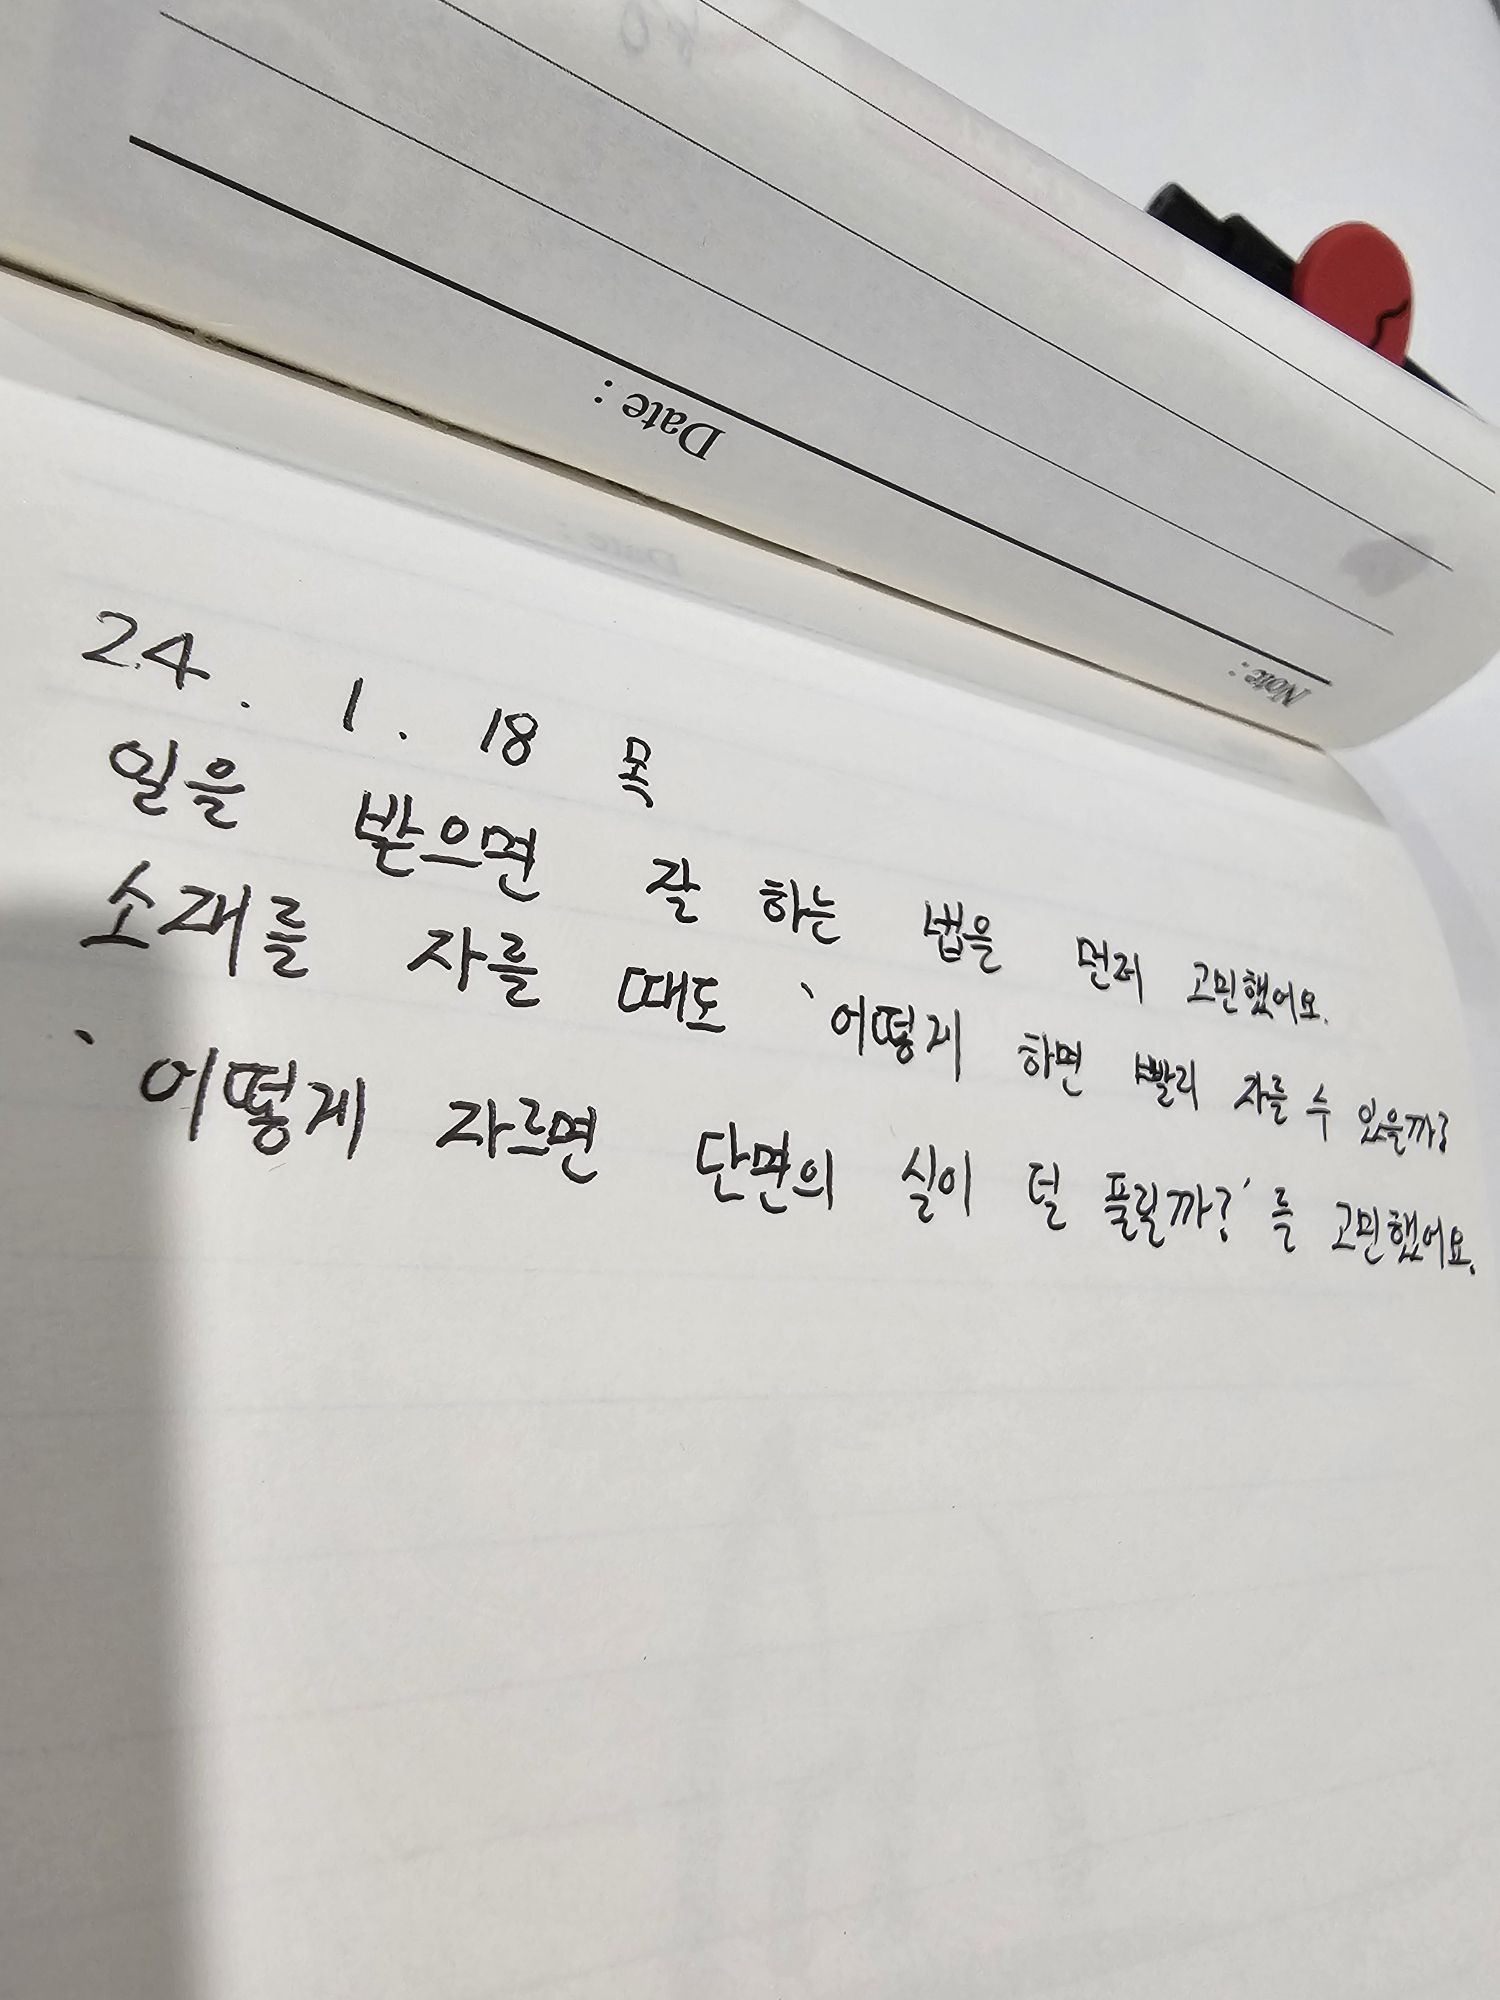 Date :
Note :
24. 1. 18 목
일을 받으면 잘 하는 법을 먼저 고민했어요.
소재를 자를 때도 `어떻게 하면 빨리 자를 수 있을까?
`어떻게 자르면 단면의 실이 덜 풀릴까?´를 고민했어요.